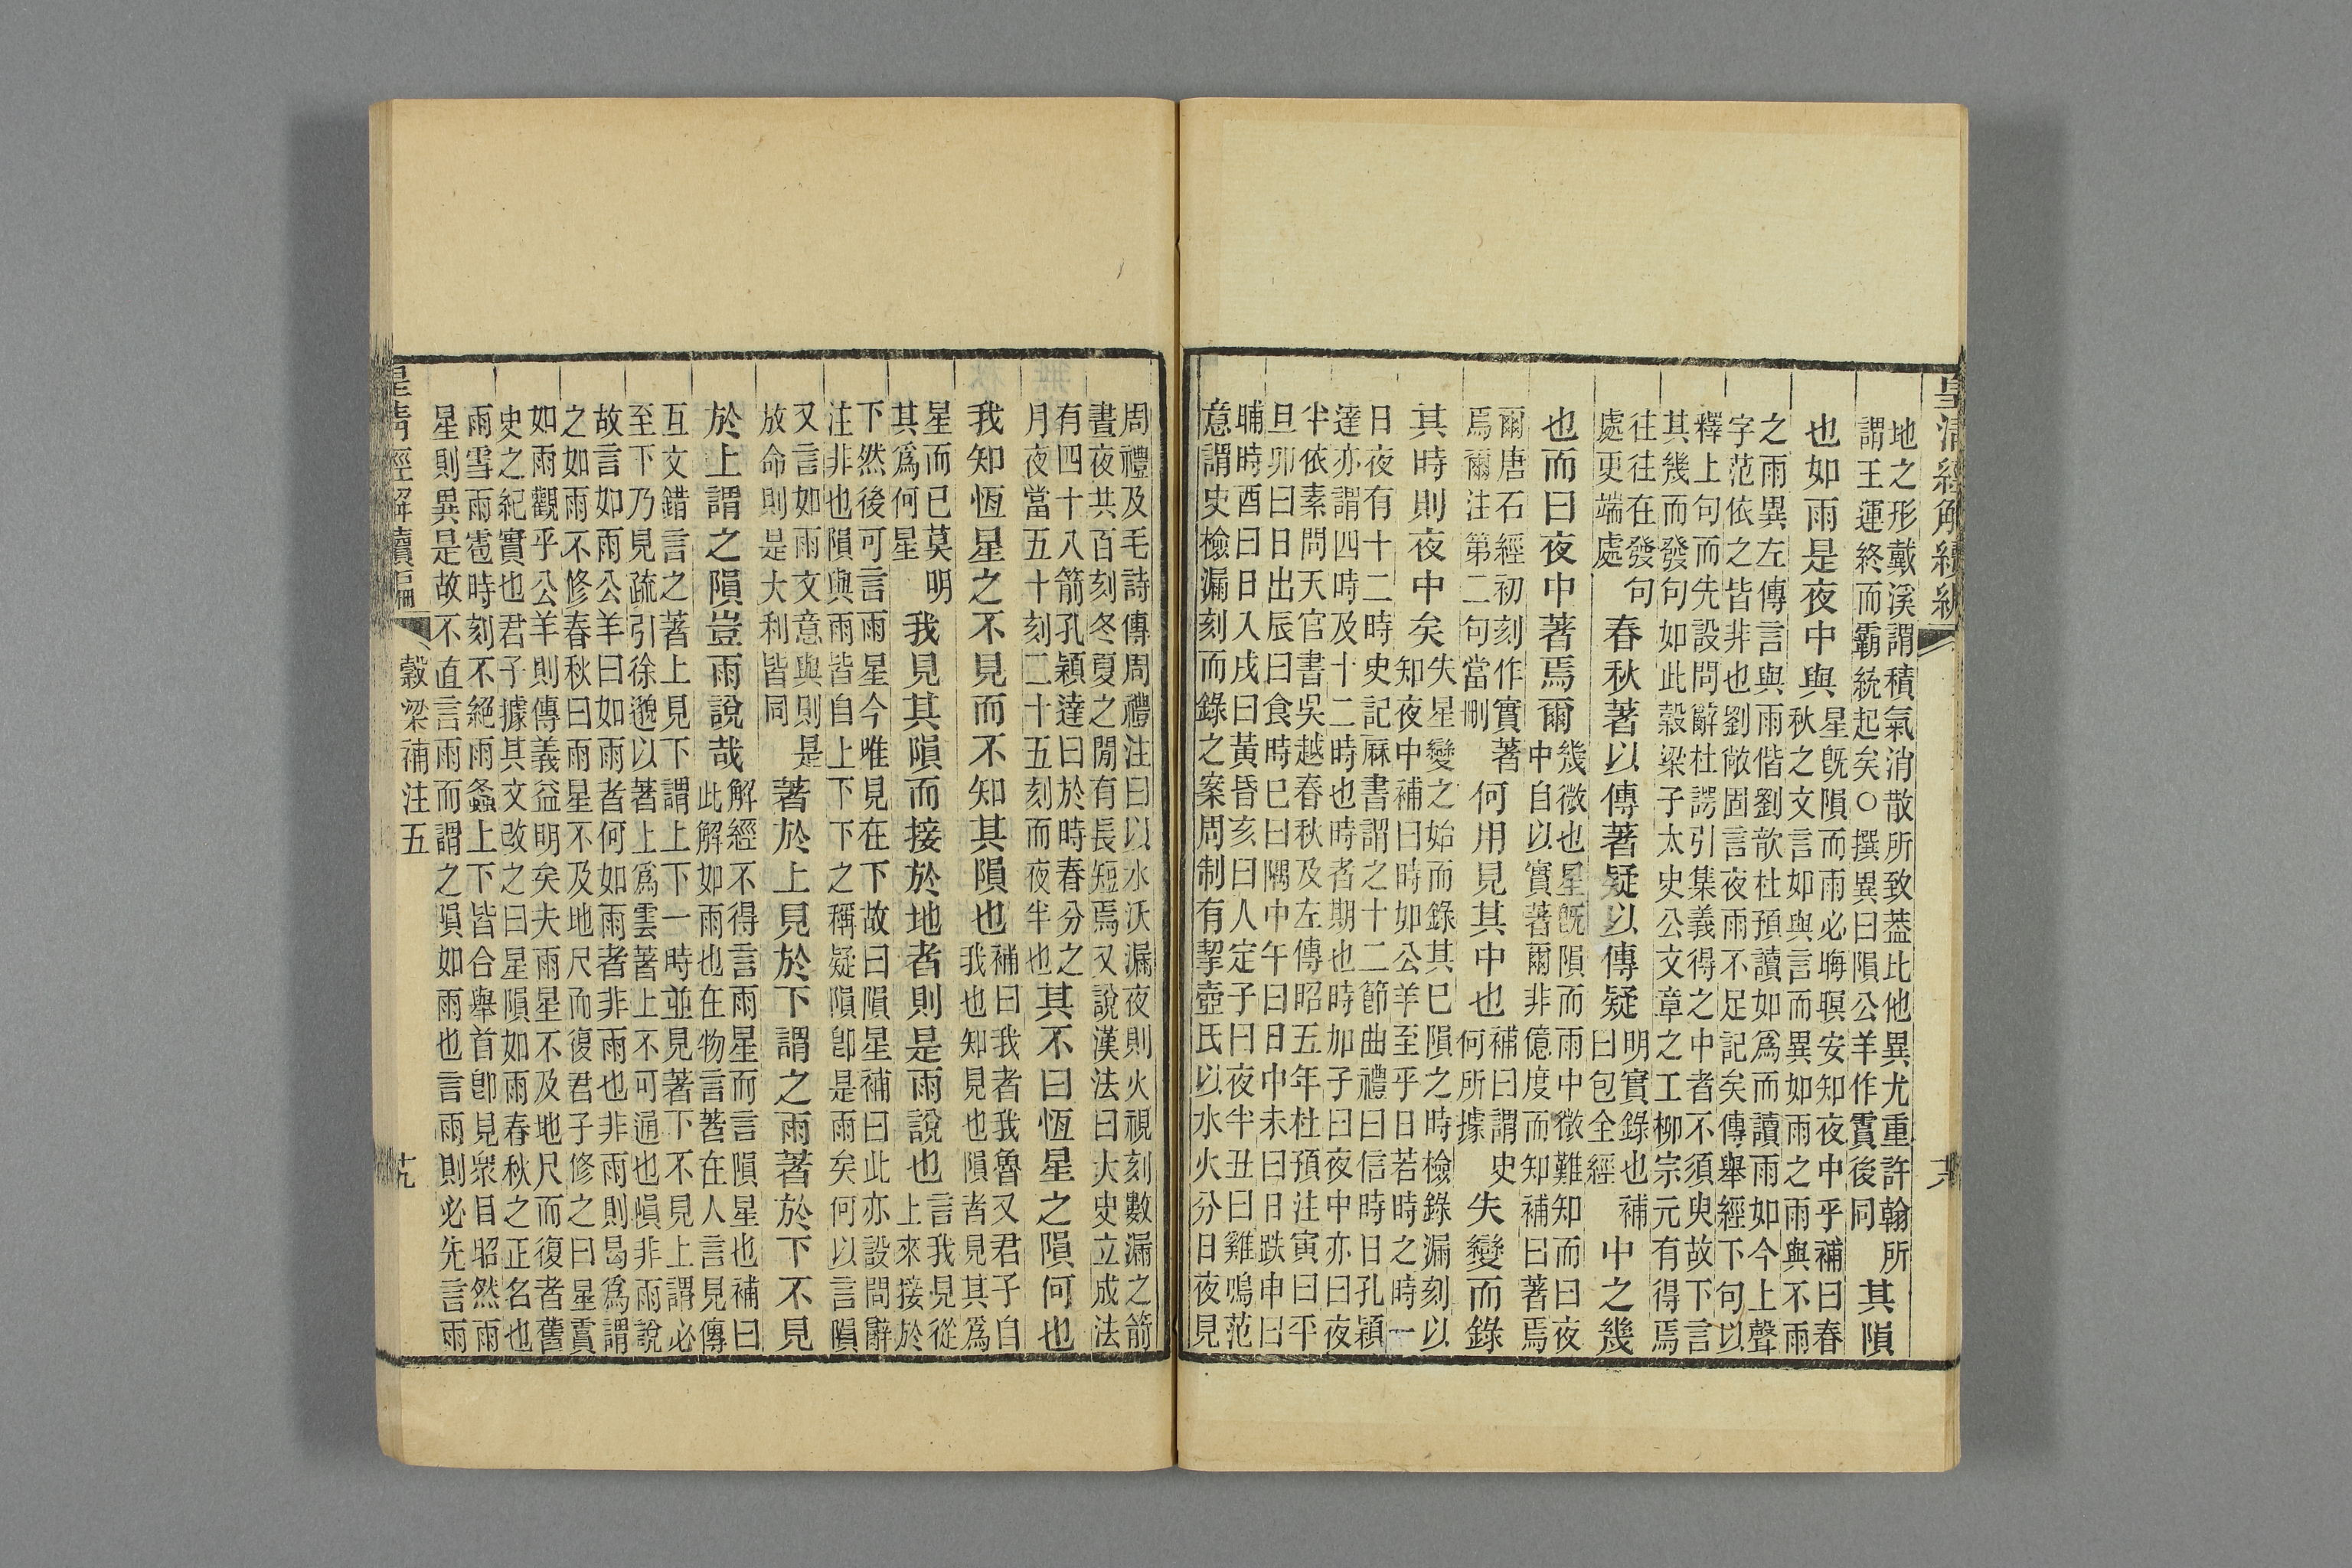 皇清經解續編
地之形戴溪謂積氣消散所致葢此他異尤重許翰所
謂王運終而霸統起矣○撰異曰隕公羊作霣後同
其隕
也如雨是夜中與
星旣隕而雨必晦暝安知夜中乎補曰春
秋之文言如與言而異如雨之雨與不雨
之雨異左傳言與雨偕劉歆杜預讀如爲而讀雨如今上聲
字范依之皆非也劉敞固言夜雨不足記矣傳舉經下句以
釋上句而先設問辭杜諤引集義得之中者不須臾故下言
其幾而發句如此穀梁子太史公文章之工柳宗元有得焉
往往在發句
處更端處
春秋著以傳著疑以傳疑
明實錄也補
曰包全經
中之幾
也而曰夜中著焉爾
幾微也星旣隕而雨中微難知而曰夜
中自以實著爾非億度而知補曰著焉
爾唐石經初刻作實著
焉爾注第二句當刪
何用見其中也
補曰謂史
何所據
失變而錄
其時則夜中矣
失星變之始而錄其已隕之時檢錄漏刻以
知夜中補曰時如公羊至乎日若時之時一
日夜有十二時史記麻書謂之十二節曲禮曰信時日孔穎
達亦謂四時及十二時也時者期也時加子曰夜中亦曰夜
半依素問天官書吳越春秋及左傳昭五年杜預注寅曰平
旦卯曰日出辰曰食時巳曰隅中午曰日中未曰日跌申曰
晡時酉曰日入戌曰黃昏亥曰人定子曰夜半丑曰雞鳴范
意謂史檢漏刻而錄之案周制有挈壺氏以水火分日夜見
周禮及毛詩傳周禮注曰以水沃漏夜則火視刻數漏之箭
晝夜共百刻冬夏之閒有長短焉又說漢法曰大史立成法
有四十八箭孔穎達曰於時春分之
月夜當五十刻二十五刻而夜半也
其不曰恆星之隕何也
我知恆星之不見而不知其隕也
補曰我者我魯又君子自
我也知見也隕者見其爲
星而已莫明
其爲何星
我見其隕而接於地者則是雨說也
言我見從
上來接於
下然後可言雨星今唯見在下故曰隕星補曰此亦設問辭
注非也隕與雨皆自上下下之稱疑隕卽是雨矣何以言隕
又言如雨文意與則是
放命則是大利皆同
著於上見於下謂之雨著於下不見
於上謂之隕豈雨說哉
解經不得言雨星而言隕星也補曰
此解如雨也在物言著在人言見傳
互文錯言之著上見下謂上下一時並見著下不見上謂必
至下乃見疏引徐邈以著上爲雲著上不可通也隕非雨說
故言如雨公羊曰如雨者何如雨者非雨也非雨則曷爲謂
之如雨不修春秋曰雨星不及地尺而復君子修之曰星霣
如雨觀乎公羊則傳義益明矣夫雨星不及地尺而復者舊
史之紀實也君子據其文改之曰星隕如雨春秋之正名也
雨雪雨雹時刻不絕雨螽上下皆合舉首卽見衆目昭然雨
星則異是故不直言雨而謂之隕如雨也言雨則必先言雨
皇清經解續編
穀梁補注五